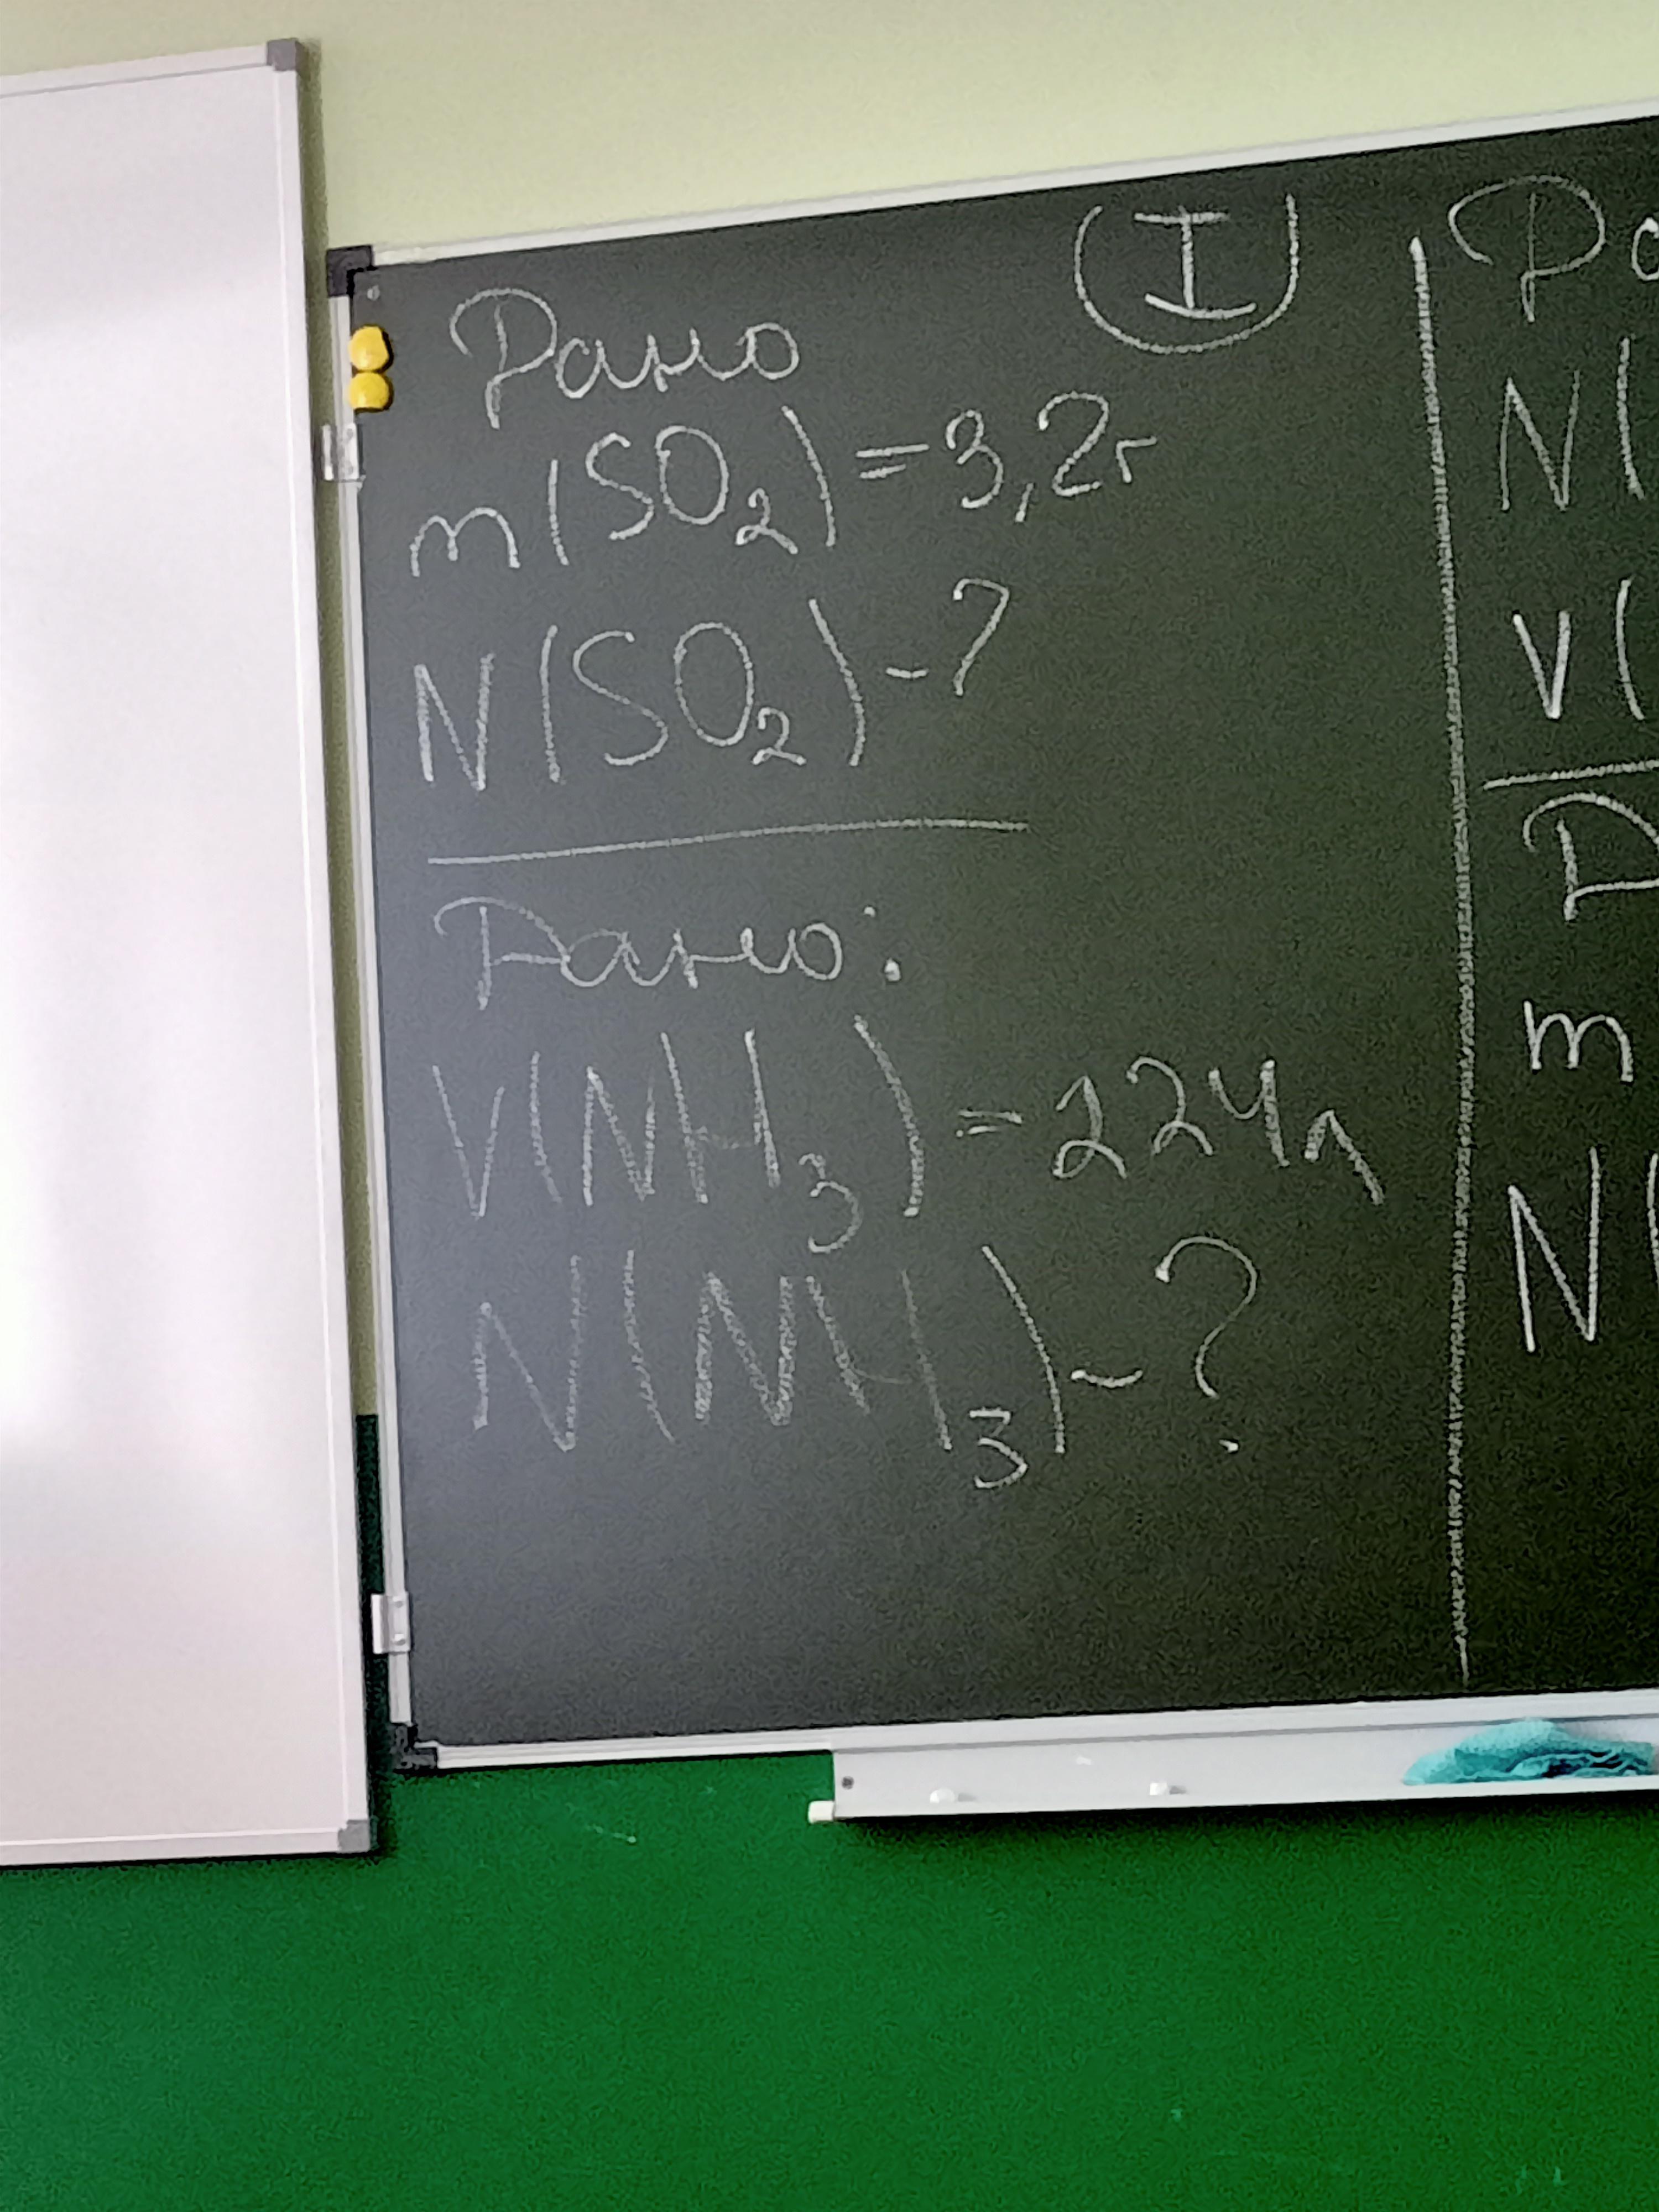 I
Дано
m(SO₂) = 3,2г
N(SO₂) - ?
Дано:
V(NH₃) = 224л
N(NH₃) - ?
N(
V(
m
N(